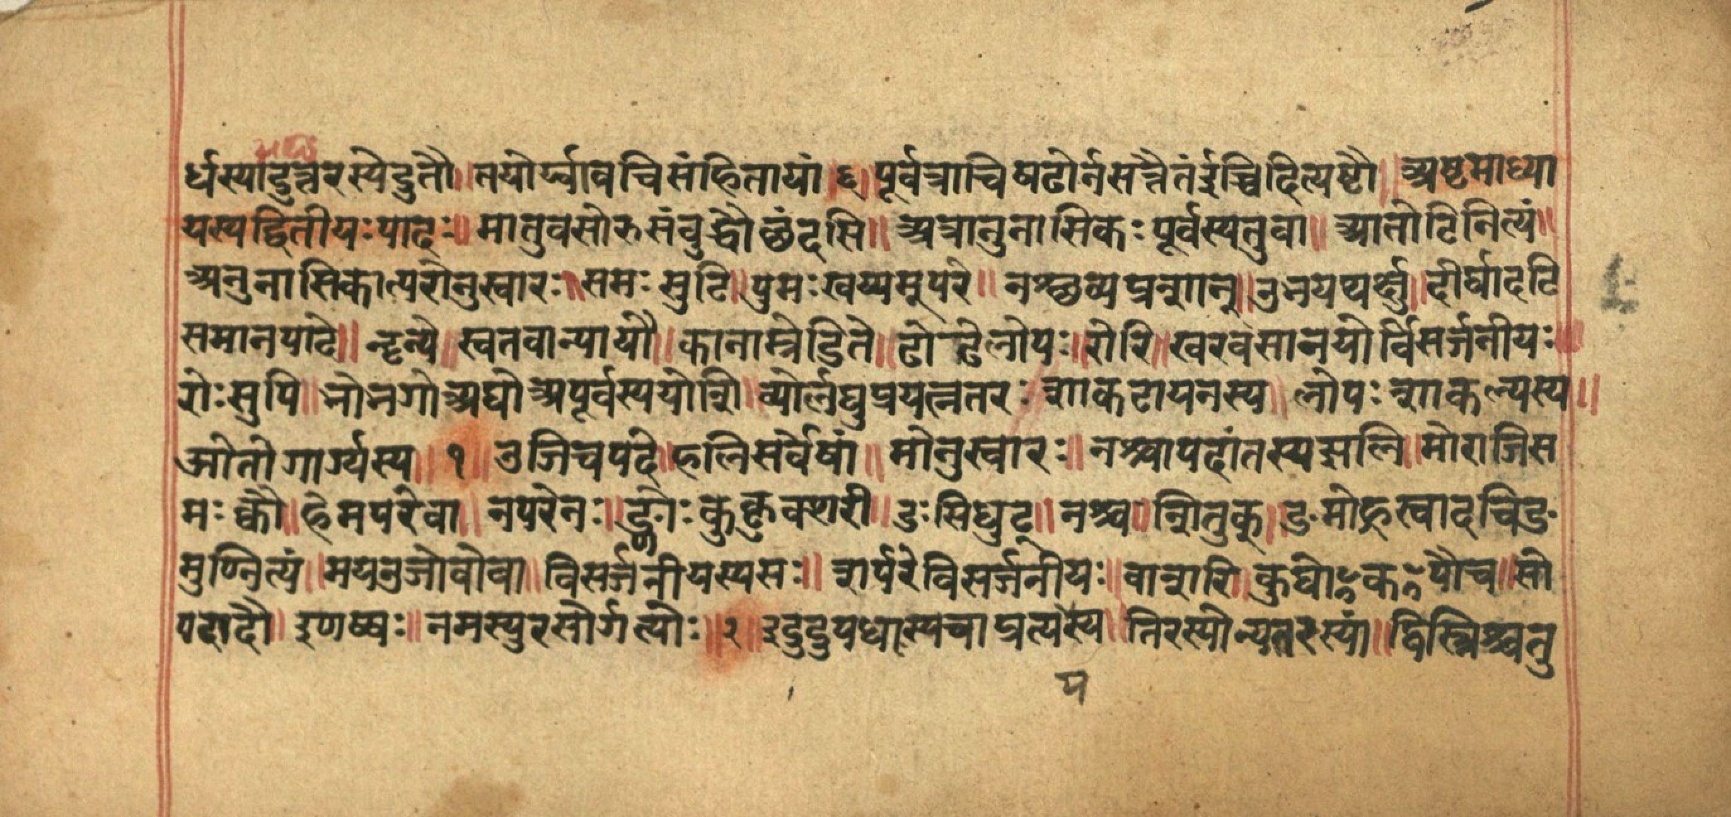 र्धस्यादुत्तरस्येदुतौ॥तयोर्य्वावचिसंहितायां॥६॥पूर्वत्राचिषढोर्नसत्तैतंर्इच्चिदित्यष्टौ॥अष्टमाध्या
यस्यद्वितीयःपादः॥मातुवसोरुसंबुद्धौछंदसि॥अत्रानुनासिकःपूर्वस्यतुवा॥आतोटिनित्यं॥
अनुनासिकात्परोनुस्वारः॥समःसुटि॥पुमःखय्यम्परे॥नश्छव्यप्रशान्॥उभयथर्क्षु॥दीर्घादटि
समानपादे॥नॄन्पे॥स्वतवान्पायौ॥कानाम्रेडिते॥ढोढेलोपः॥रोरि॥खरवसानयोर्विसर्जनीयः॥
रोःसुपि॥भोभगोअघोअपूर्वस्ययोशि॥व्योर्लघुप्रयत्नतरःशाकटायनस्य॥लोपःशाकल्यस्य॥
ओतोगार्ग्यस्य॥१॥उञिचपदे॥हलिसर्वेषां॥मोनुस्वारः॥नश्चापदांतस्यझलि॥मोराजिस
मःक्वौ॥हेमपरेवा॥नपरेनः॥ङ्णोःकुक्टुक्शरी॥डःसिधुट्॥नश्च॥शितुक्॥ङमोह्रस्वादचिङ
मुण्नित्यं॥मयउञोवोवा॥विसर्जनीयस्यसः॥शर्परेविसर्जनीयः॥वाशरि॥कुप्वोःकःपौच॥सो
पदादौ॥इणष्षः॥नमस्पुरसोर्गत्योः॥२॥इदुदुपधास्यचाप्रत्यस्य॥तिरस्योन्यतरस्यां॥द्विस्त्रिश्चतु
प